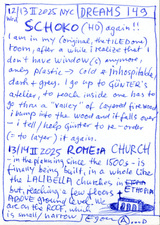 12/13 II 2025 NYC DREAMS 149
Wed SCHOKO (HÖ) again!!
I am in my (original, ANTILEDame)
room, after a while I realize that I
don't have window(s) anymore,
only plastic → cold & inhospitable,
dark & gray. I go up to GÜNTER's
atelier, to reach inside one has to
go thru a "valley" of layered fir wood
I bump into the wood and it falls over
- I tell / help Günter to re-order
(= to layer) it again.
13/14 II 2025 ROMEIA CHURCH
in the planning since the 1500s - is
finally being built, in a whole like
the LALIBELA churches in
ETHIOPIA
but, reaching a few floors
ABOVE GROUND LEVEL. We
are on the ROOF, which
is small / narrow